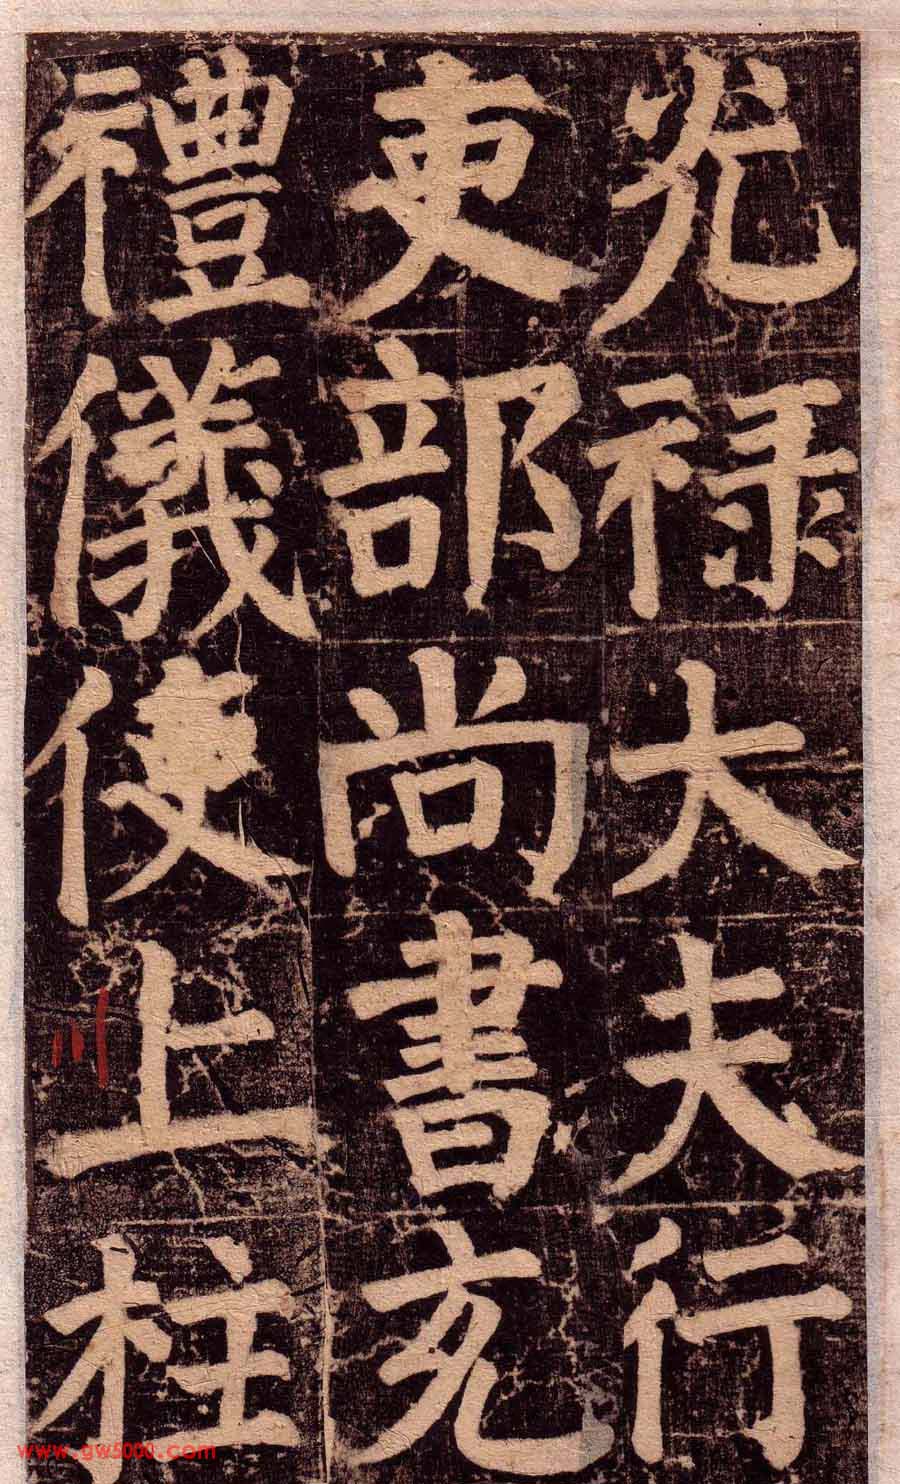 光祿大夫行
吏部尚書充
禮儀使上柱
www.gw5000.com